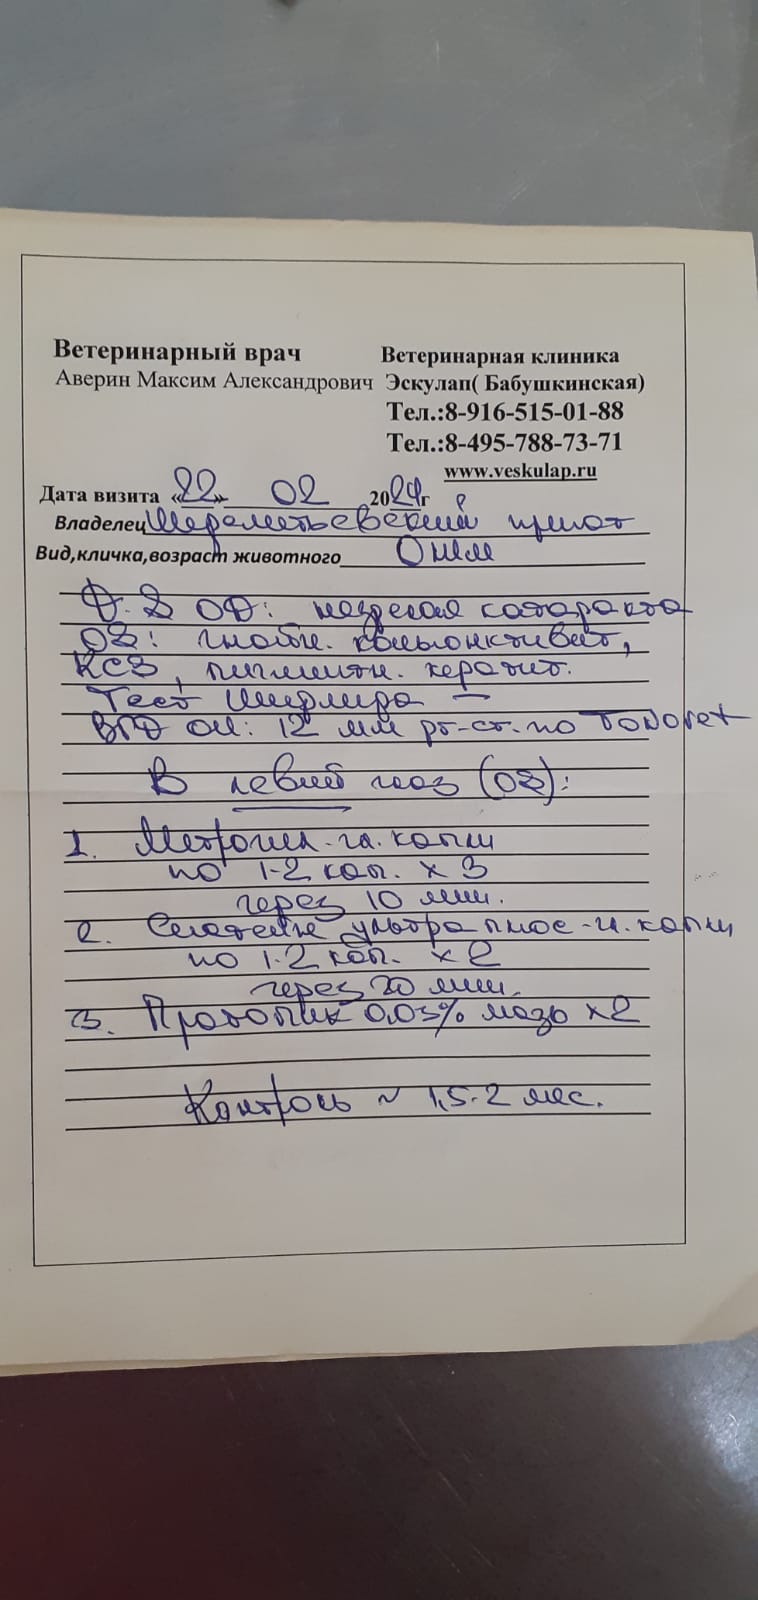 Ветеринарный врач
Аверин Максим Александрович
Ветеринарная клиника
Эскулап( Бабушкинская)
Тел.:8-916-515-01-88
Тел.:8-495-788-73-71
www.veskulap.ru
Дата визита «22» 02 2024г
Владелец Шереметьевский приют
Вид,кличка,возраст животного
OD: незрелая катаракта
OS: гнойн. конъюнктивит,
КСЗ, пигментн. кератит.
Тест Ширмера –
ВГД OU: 12 мм рт-ст. по Tonovet
В левый глаз (OS):
1. Метрогил - гл. капли
по 1-2 кап. х 3
через 10 мин.
2. Систейн ультра плюс - гл. капли
по 1-2 кап. х 2
через 20 мин.
3. Протопик 0,03% мазь х2
Контроль ~ 1,5-2 мес.